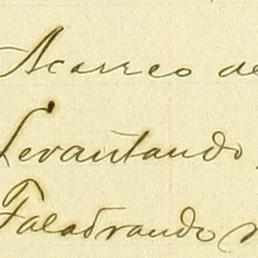 Acarreo de
Levantando
Taladrando